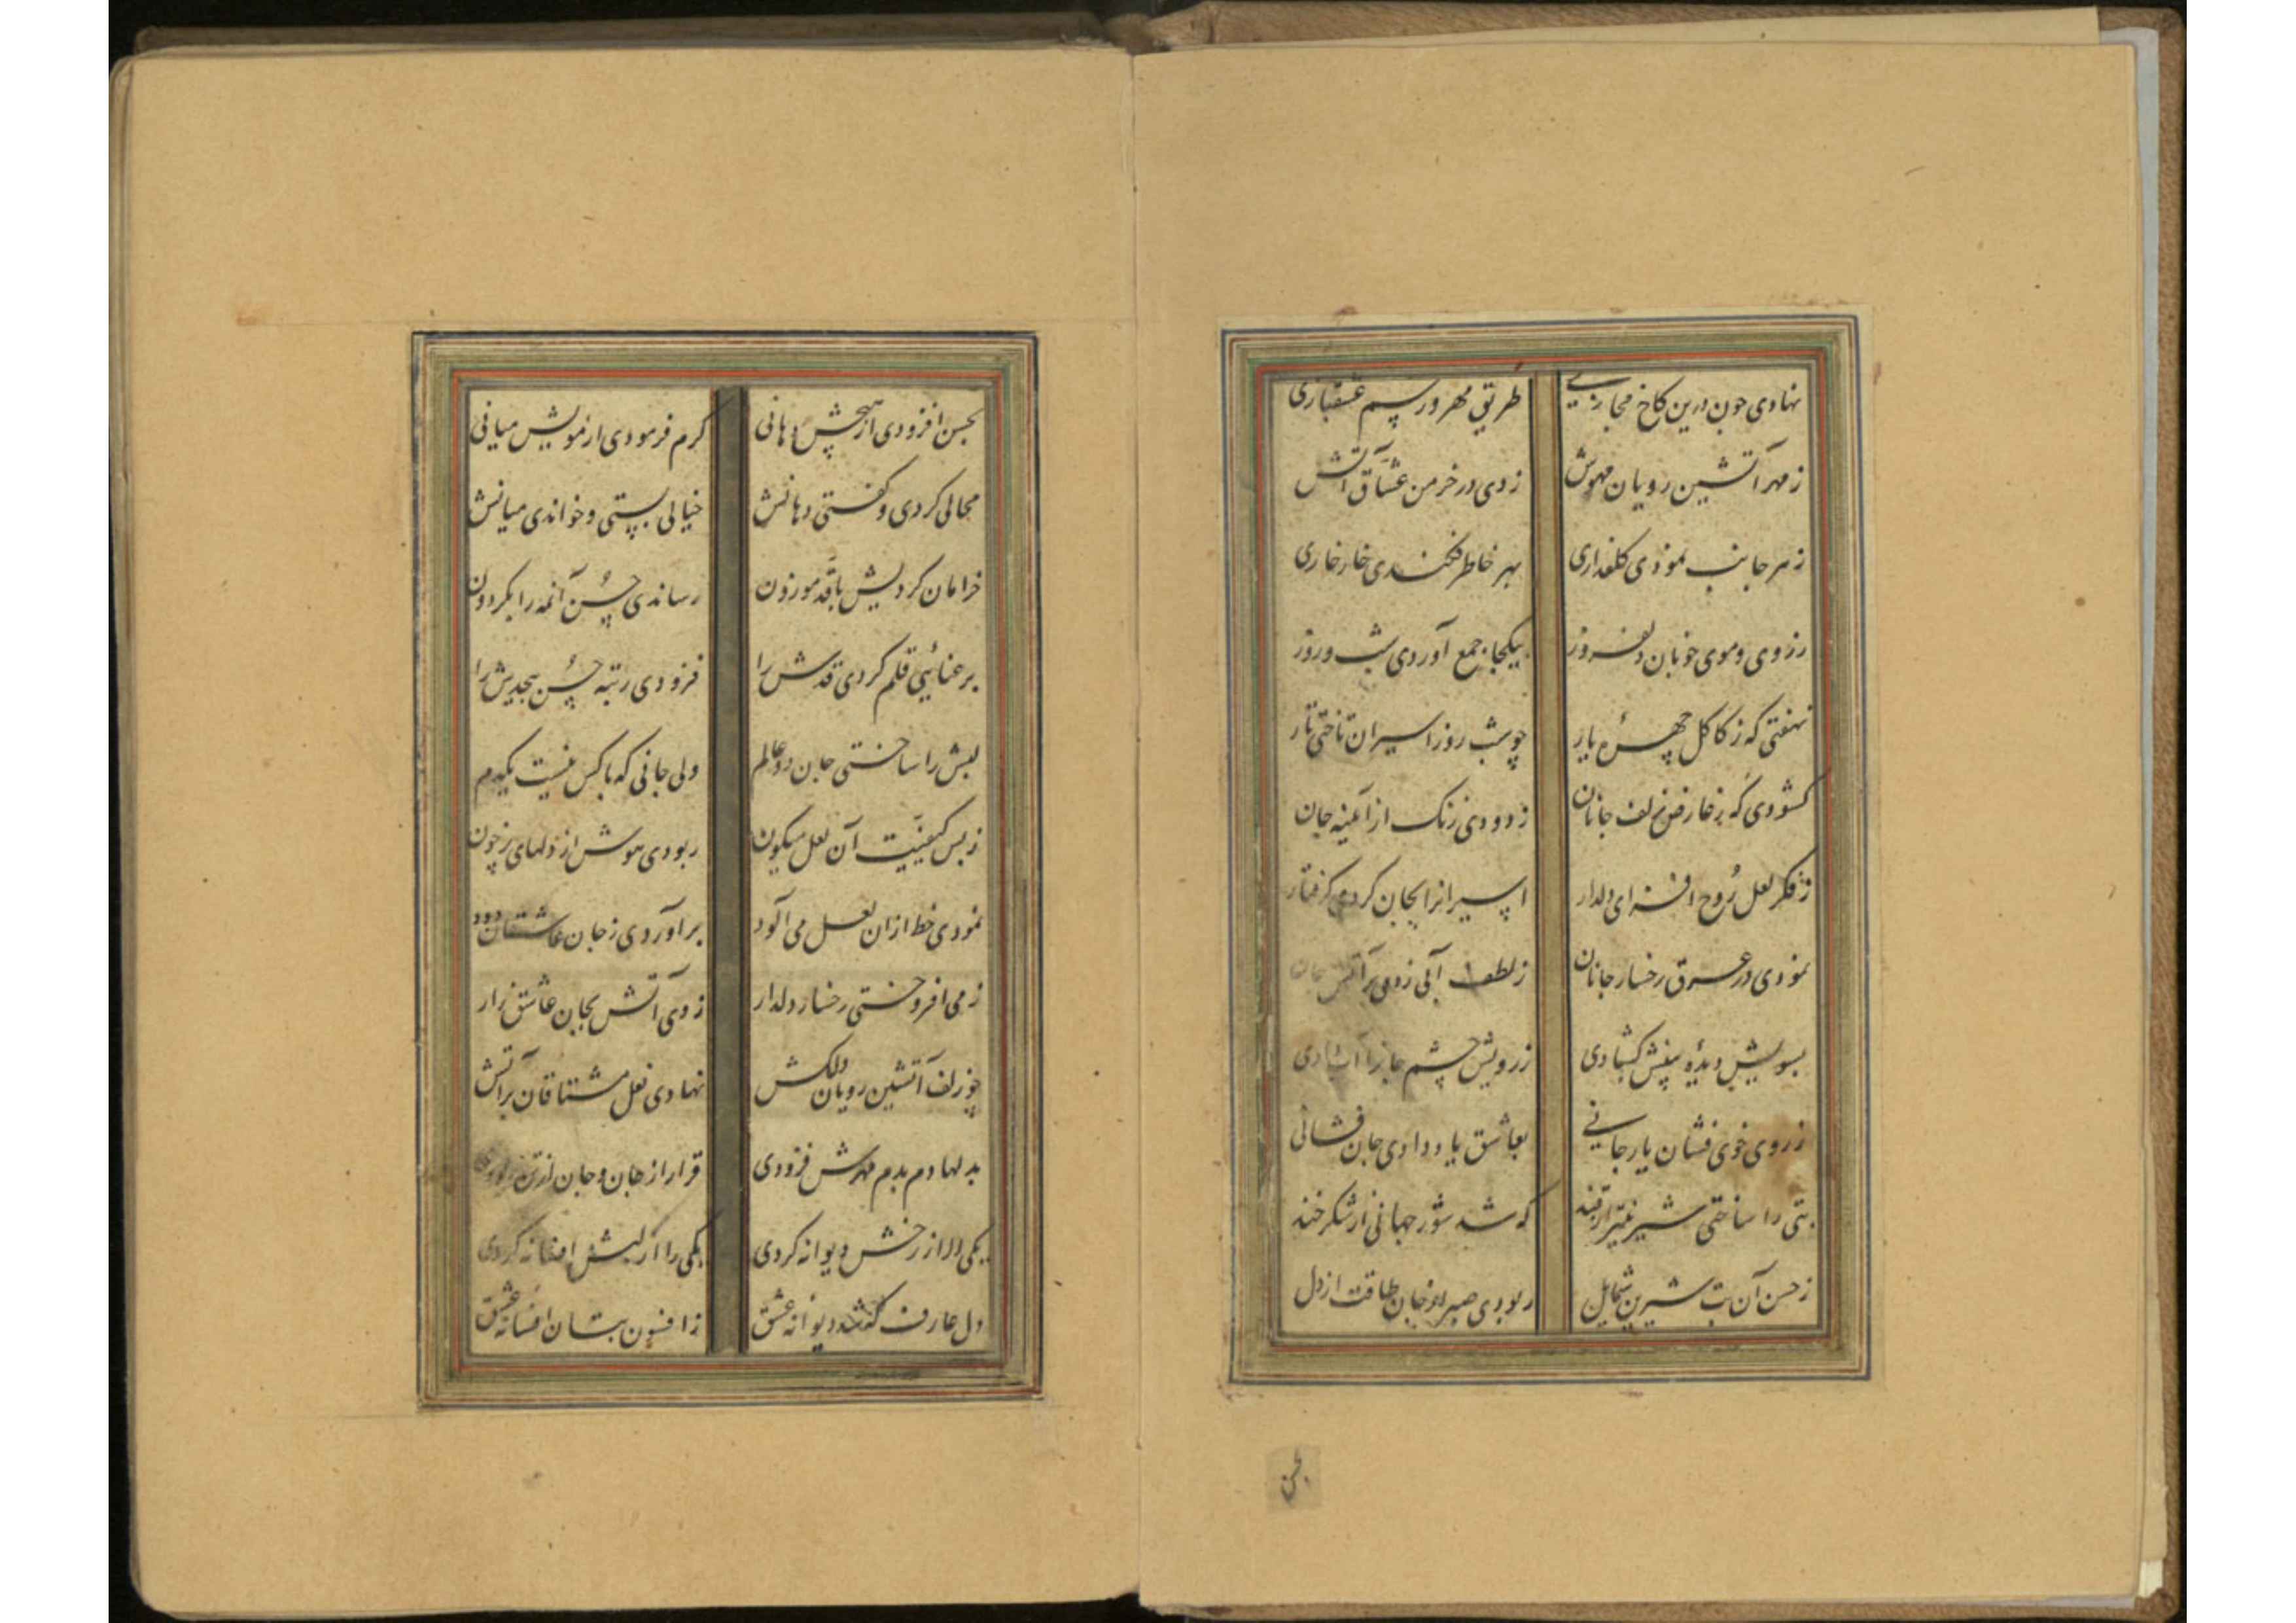 نهادی چون درین کاخ مجازی
طریق مهر و رسم عشقبازی
ز مهر آتشین رویان مهوش
زدی در خرمن عشّاق آتش
ز هر جانب نمودی گلعذاری
بهر خاطر فکندی خار خاری
ز روی و موی خوبان دلفروز
بیکجا جمع آوردی شب و روز
نهفتی که ز کاکل چهرهٔ یار
چو شب روز اسیران ساختی تار
گشودی که ز عارض زلف جانان
زدودی زنک از آیینه جان
ز فکر لعل رُوح افزای دلدار
اسیرانرا بجان کردی گرفتار
نمودی در عرق رخسار جانان
ز لطف آبی زدی بر آتش جان
بسویش دیدهٔ بینش گشادی
ز رویش چشم جانرا آب دادی
ز روی خوی فشان یار جانی
بعاشق یاد دادی جان فشانی
بتی را ساختی شیرین‌تر از قند
که شد شور جهانی از شکر خند
ز حسن آن بت شیرین شمایل
ربودی صبر از جان طاقت از دل
بحسن
بحسن افزودی از هیچش دهانی
کرم فرمودی از مویش میانی
محالی کردی و گفتی دهانش
خیالی بستی و خواندی میانش
خرامان کردیش با قدّ موزون
رساندی حُسن آنمه را بگردون
برعنائیی قلم کردی قدش را
فزودی رتبه حُسن بیحدش را
لبش را ساختی جان دو عالم
ولی جانی که با کس نیست یکدم
ز بس کیفیّت آن لعل میگون
ربودی هوش از دلهای پر خون
نمودی خط ازان لعل می آلود
برآوردی ز جان عاشقان دود
ز می افروختی رخسار دلدار
زدی آتش بجان عاشق زار
چو زلف آتشین رویان دلکش
نهادی نعل مشتاقان بر آتش
بدلها دم بدم مهرش فزودی
قرار از جان و جان از تن ربودی
یکی را از رخش دیوانه کردی
یکی را از لبش افسانه کردی
دل عارف که شد دیوانه عشق
ز افسون بتان افسانه عشق